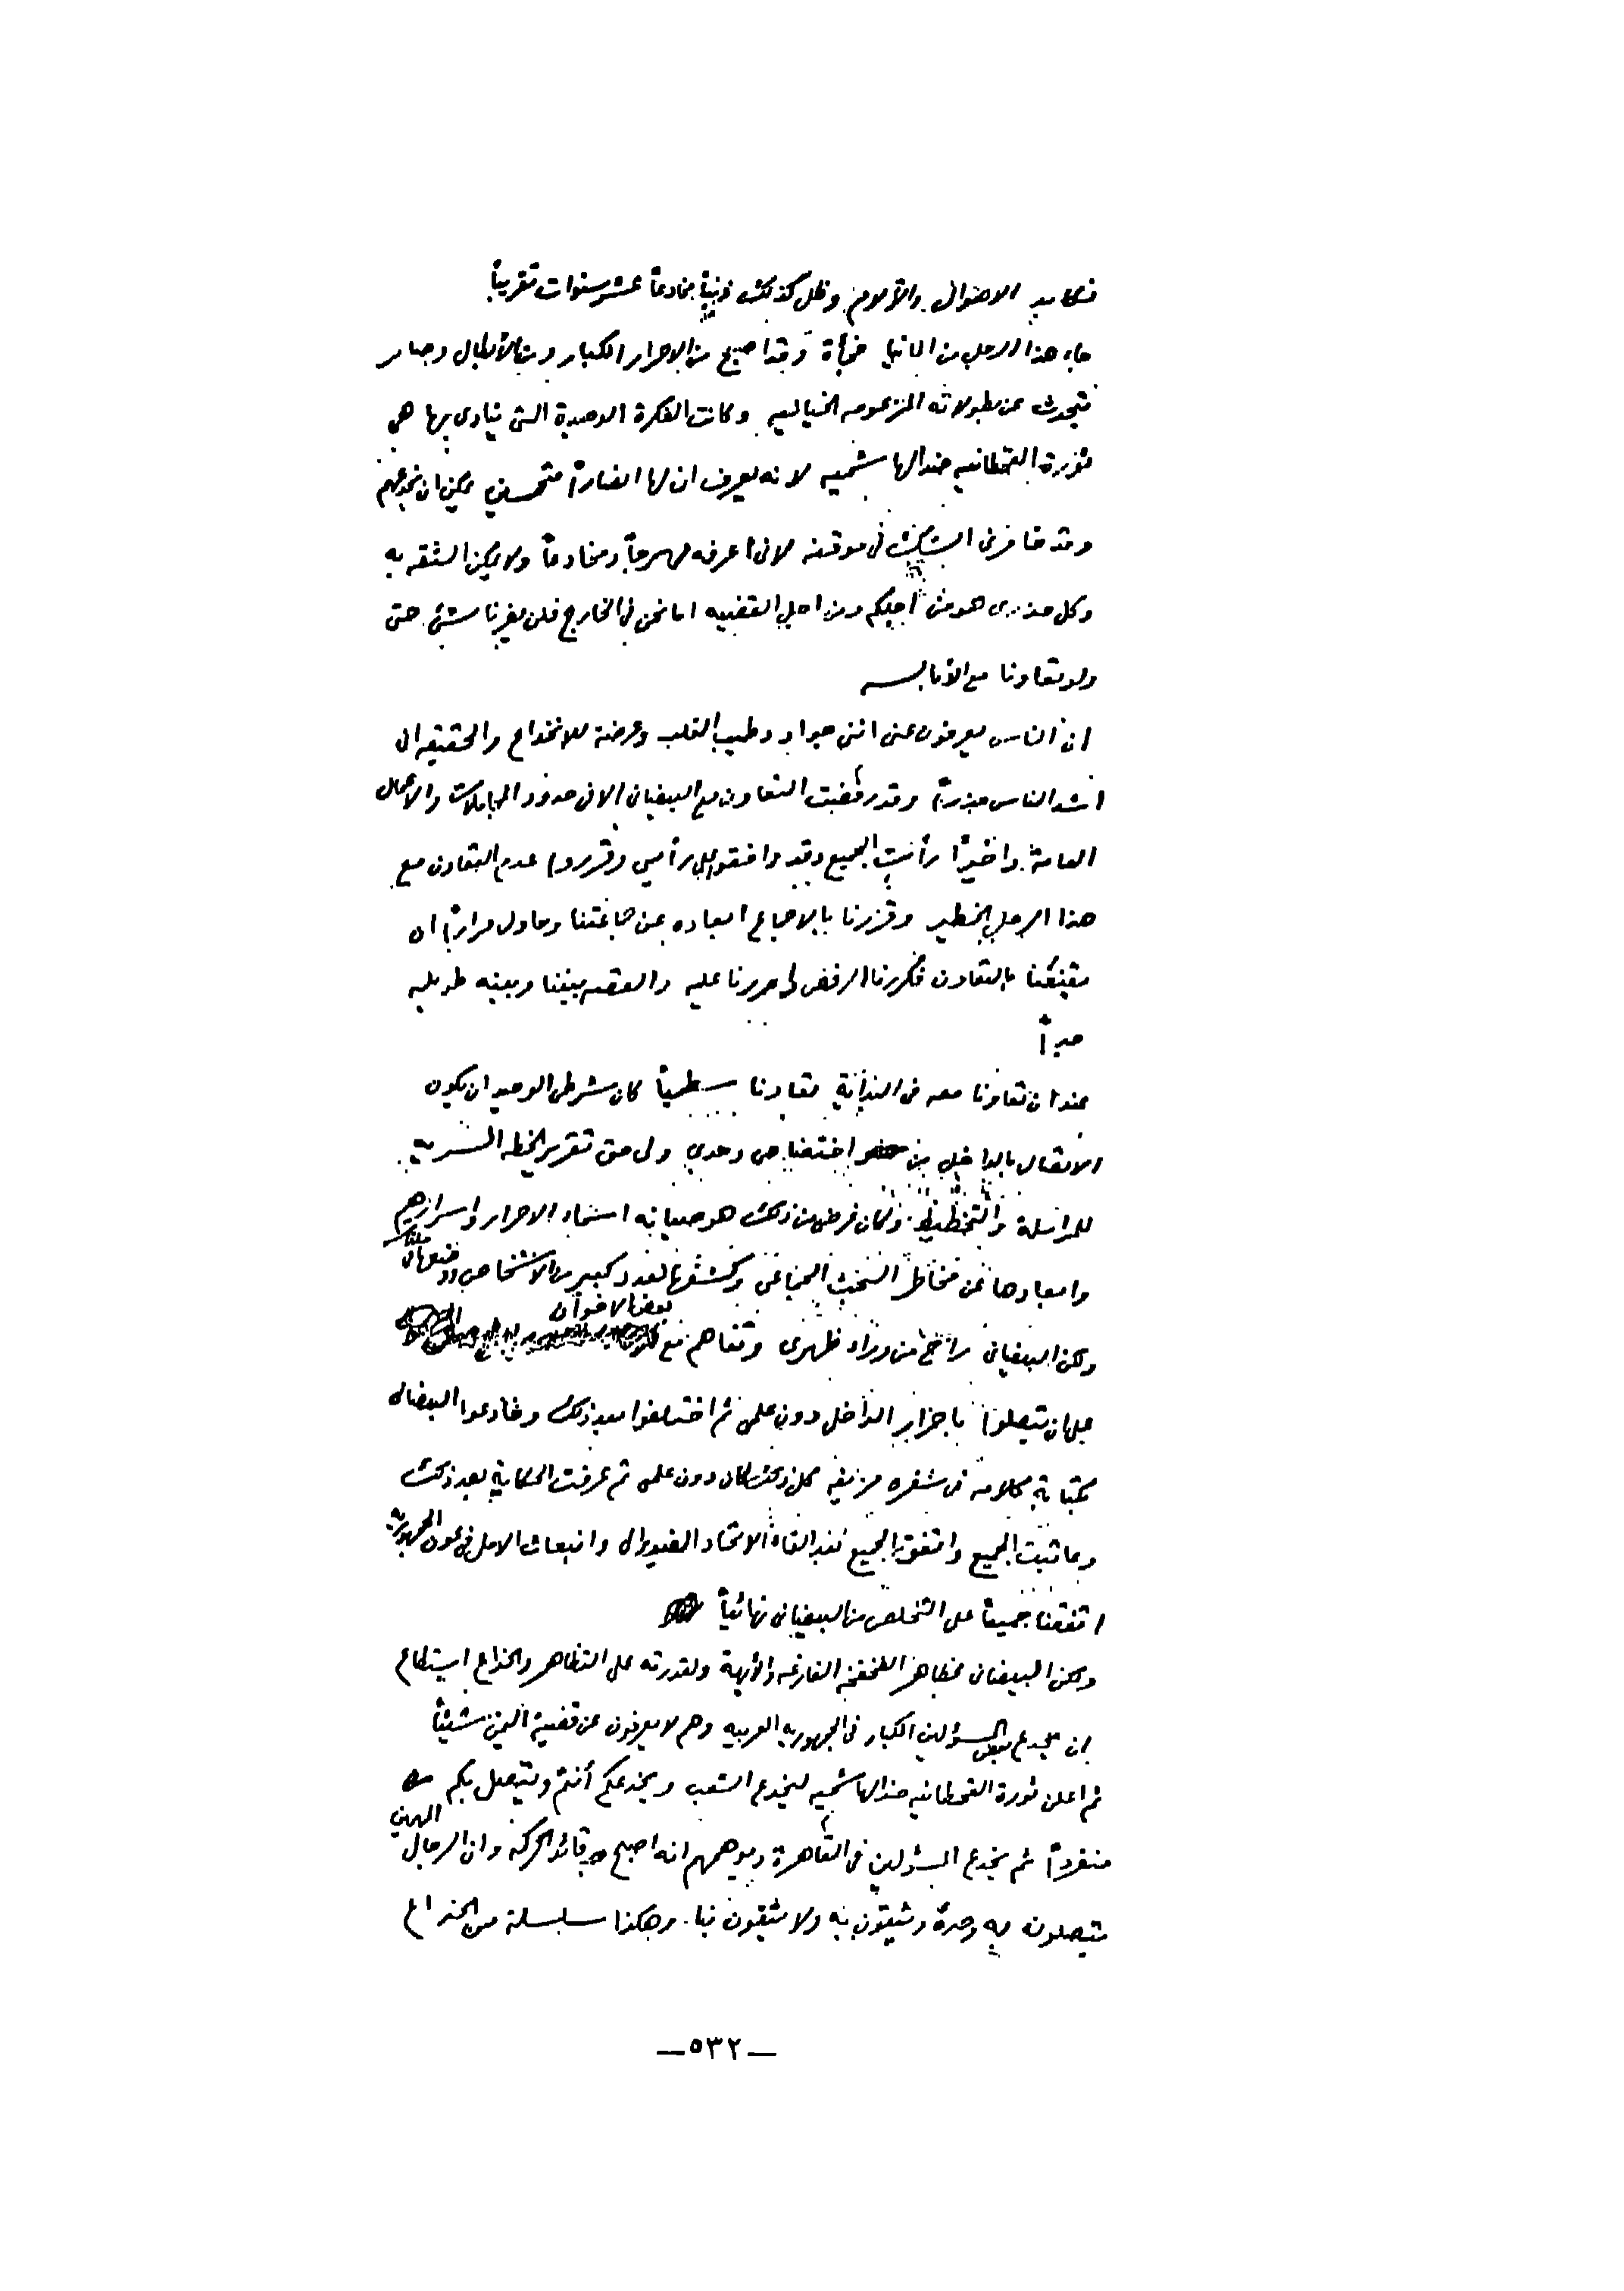 نكابد الاهوال والآلام وظل كذلك ذنباً مخادعاً عشر سنوات تقريباً
جاء هذا الرجل من المانيا فجأة وقد اصبح من الاحرار الكبار ومن الأبطال وصار
يتحدث عن بطولاته المزعومه الخياليه وكانت الفكرة الوحيدة التي ينادى بها هي
ثورة القحطانيه ضد الهاشميه لانه يعرف ان لها انصاراً متحمسين يمكن ان يخدعهم
وقد خامرني الشك في موقفه لاني أعرفه مهرجاً ومخادعاً ولا يمكن الثقه به
وكل حذرى هو من أجلكم ومن اجل القضيه اما نحن في الخارج فلن يضرنا شئ حتى
ولو تعاونا مع الأبالسه
ان الناس يعرفون عني انني جواد وطيب القلب وعرضة للانخداع والحقيقه اني
اشد الناس حذراً وقد رفضت التعاون مع البيضاني الا في حدود المجاملات والأعمال
العامة وأخيراً رأيت الجميع وقد وافقوا على رأيي وقرروا عدم التعاون مع
هذا الرجل الخطير وقررنا بالاجماع ابعاده عن جماعتنا وحاول مراراً ان
يقنعنا بالتعاون فكررنا الرفض واصررنا عليه والقصه بيننا وبينه طويله
جداً
عند ان تعاونا معه في البداية تعاونا سطحياً كان شرطي الوحيد ان يكون
الاتصال بالداخل من اختصاصي وحدي ولي حق تقرير الخطه السريه
للمراسلة والتخطيط وكان غرضي من ذلك هو صيانه اسماء الاحرار واسرارهم
وابعادها عن مخاطر البحث الجماعي وكشفها لعدد كبير من الاشخاص
ولكن البيضاني راح من وراء ظهرى وتفاهم مع بعض الاخوان
على ان يتصلوا باحرار الداخل دون علمي ثم اختلفوا بعد ذلك وخادعوا البيضاني
بكتابة كلامه في شفره مزيفه كل ذلك كان دون علمي ثم عرفت الحكاية بعد ذلك
وعاتبت الجميع واتفق الجميع بعد الغاء الاتحاد الفيدرالي وانبعاث الامل في عون الجمهورية
اتفقنا جميعاً على التخلص من البيضاني نهائياً
ولكن البيضاني بمظاهر الفخفخه الفارغه والأبهة ولقدرته على التظاهر والخداع استطاع
ان يخدع بعض المسؤلين الكبار في الجمهوريه العربيه وهم لا يعرفون عن قضية اليمن شيئاً
ثم اعلن ثورة القحطانيه ضد الهاشميه ليخدع الشعب ويخدعكم أنتم ويتصل بكم
منفرداً ثم يخدع المسؤلين في القاهرة ويوهمهم انه اصبح قائد الحركه وان الرجال
يتصلون به وحده ويثقون به ولا يثقون بنا. وهكذا سلسلة من الخداع
—٥٣٢—